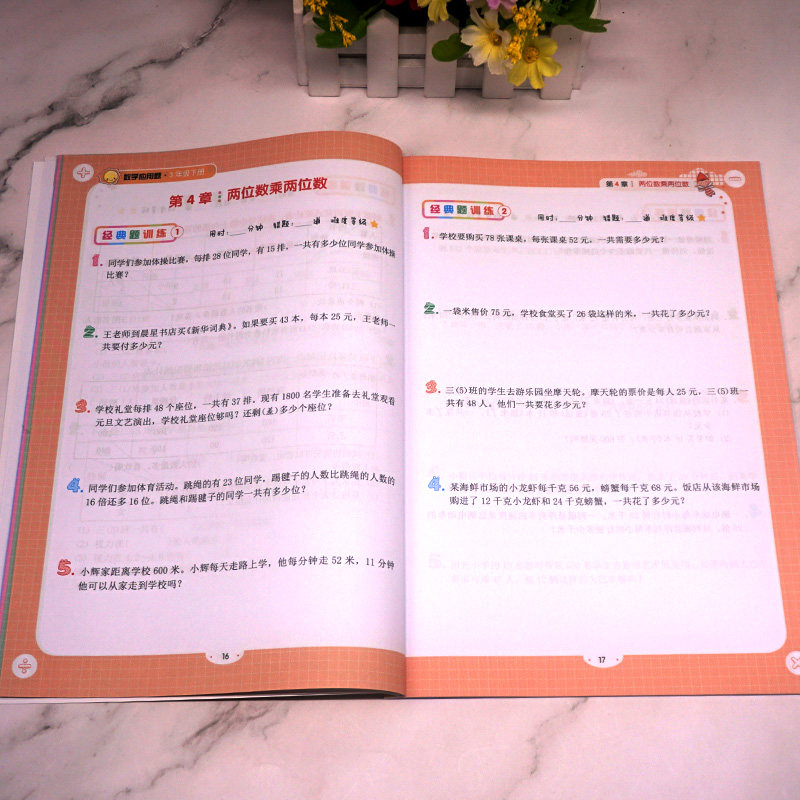 数学应用题·3年级下册
第4章 两位数乘两位数
经典题训练 1 用时:___分钟 错题:___道 难度等级
1. 同学们参加体操比赛，每排28位同学，有15排，一共有多少位同学参加体操
比赛？
2. 王老师到晨星书店买《新华词典》。如果要买43本，每本25元，王老师一
共要付多少元？
3. 学校礼堂每排48个座位，一共有37排。现有1800名学生准备去礼堂观看
元旦文艺演出，学校礼堂座位够吗？还剩(差)多少个座位？
4. 同学们参加体育活动。跳绳的有23位同学，踢毽子的人数比跳绳的人数的
16倍还多16位。跳绳和踢毽子的同学一共有多少位？
5. 小辉家距离学校600米。小辉每天走路上学，他每分钟走52米，11分钟
他可以从家走到学校吗？
16
第4章 两位数乘两位数
经典题训练 2 用时:___分钟 错题:___道 难度等级
1. 学校要购买78张课桌，每张课桌52元。一共需要多少元？
2. 一袋米售价75元，学校食堂买了26袋这样的米，一共花了多少元？
3. 三(5)班的学生去游乐园坐摩天轮。摩天轮的票价是每人25元，三(5)班一
共有48人。他们一共要花多少元？
4. 某海鲜市场的小龙虾每千克56元，螃蟹每千克68元。饭店从该海鲜市场
购进了12千克小龙虾和24千克螃蟹，一共花了多少元？
17